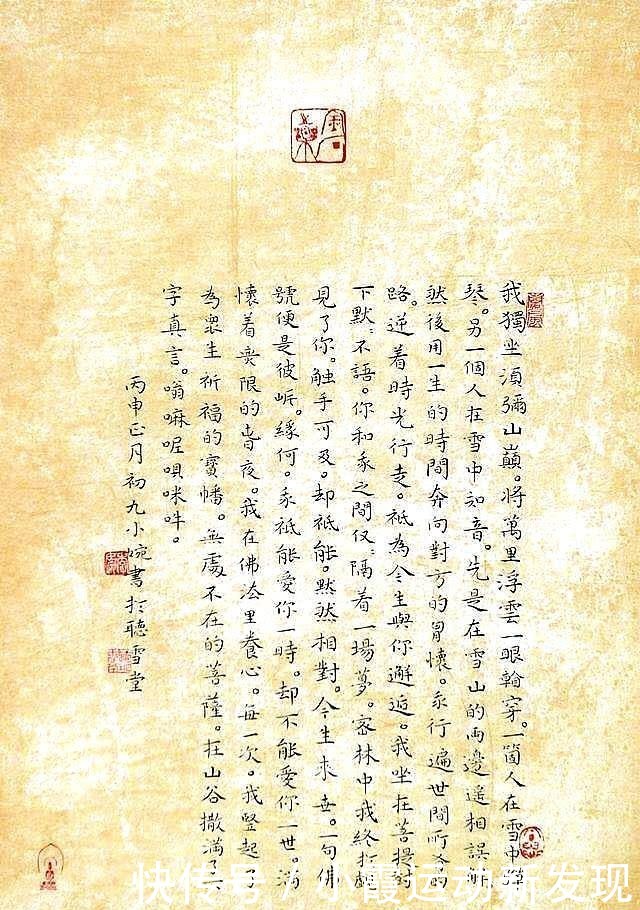 我獨坐須彌山巔。將萬里浮雲一眼看穿。一箇人在雪中彈
琴。另一個人在雪中知音。先是在雪山的兩邊遙相誤解
然後用一生的時間奔向對方的胸懷。我行遍世間所有的
路。逆着時光行走。祇為今生與你邂逅。我坐在菩提樹
下默默不語。你和我之間仅仅隔着一場夢。密林中我終於
見了你。触手可及。却祇能。默然相對。今生來世。一句佛
號便是彼岸。緣何。我祇能愛你一時。却不能愛你一世。滿
懷着無限的暗夜。我在佛法里養心。每一次。我豎起了
為眾生祈福的寶幡。無處不在的菩薩。在山谷撒滿了六
字真言。嗡嘛呢唄咪吽。
丙申正月初九小婉書於聽雪堂
快传号/小霞运动新发现